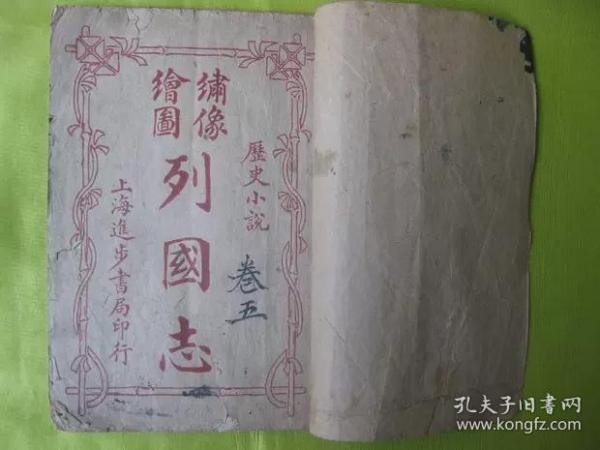 歷史小説
卷五
繡像
繪圖
列國志
上海進步書局印行
孔夫子旧書网
www.kongfz.com